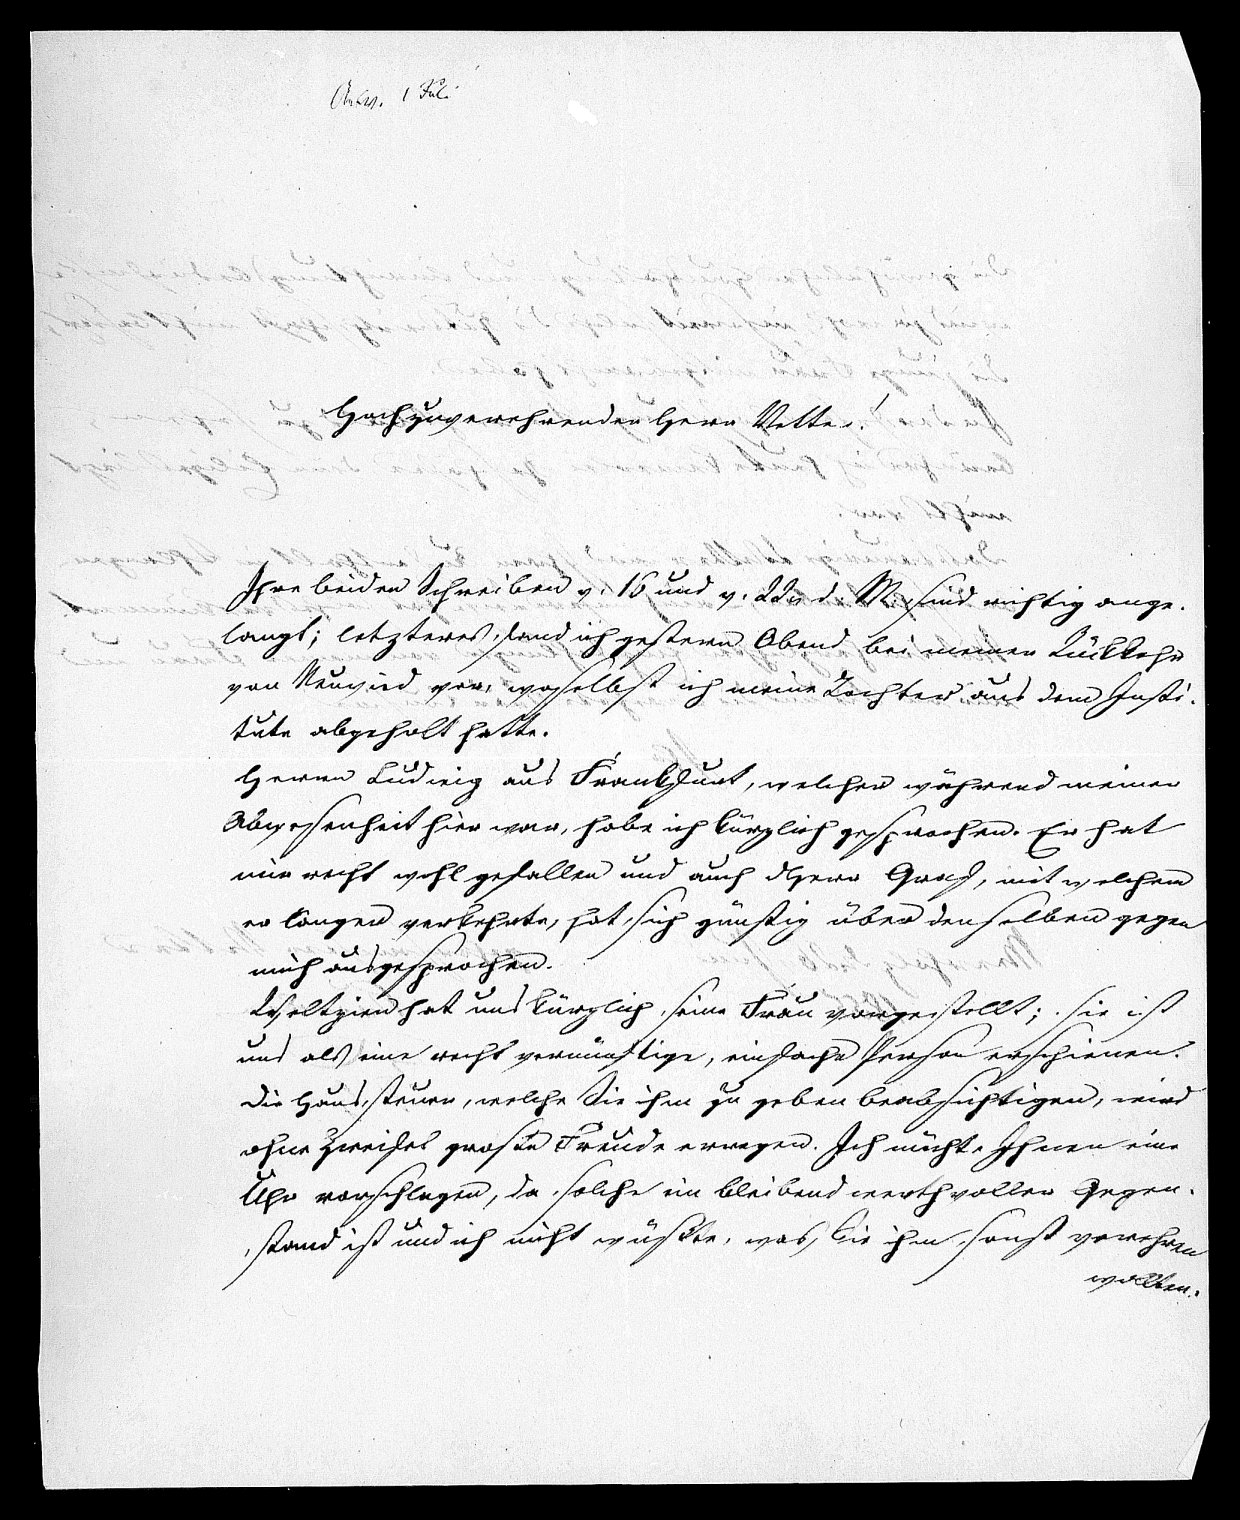 Antw. 1 Juli
Hochzuverehrender Herr Vetter!
Ihre beiden Schreiben v. 16 und v. 22 d. M. sind richtig ange-
langt; letzteres fand ich gestern Abend bei meiner Rückkehr
von Neuwied vor, woselbst ich meine Tochter aus dem Insti-
tute abgeholt hatte.
Herrn Ludwig aus Frankfurt, welcher während meiner
Abwesenheit hier war, habe ich kürzlich gesprochen. Er hat
mir recht wohl gefallen und auch Herr Graf, mit welchem
er länger verkehrte, hat sich günstig über denselben gegen
mich ausgesprochen.
Weltzien hat uns kürzlich seine Frau vorgestellt; sie ist
uns als eine recht vernünftige, einfache Person erschienen.
Die Haussteuer, welche Sie ihm zu geben beabsichtigen, wird
ohne Zweifel große Freude erregen. Ich möchte Ihnen eine
Uhr vorschlagen, da solche ein bleibend werthvoller Gegen-
stand ist und ich nicht wüßte, was Sie ihm sonst verehren
wollten.